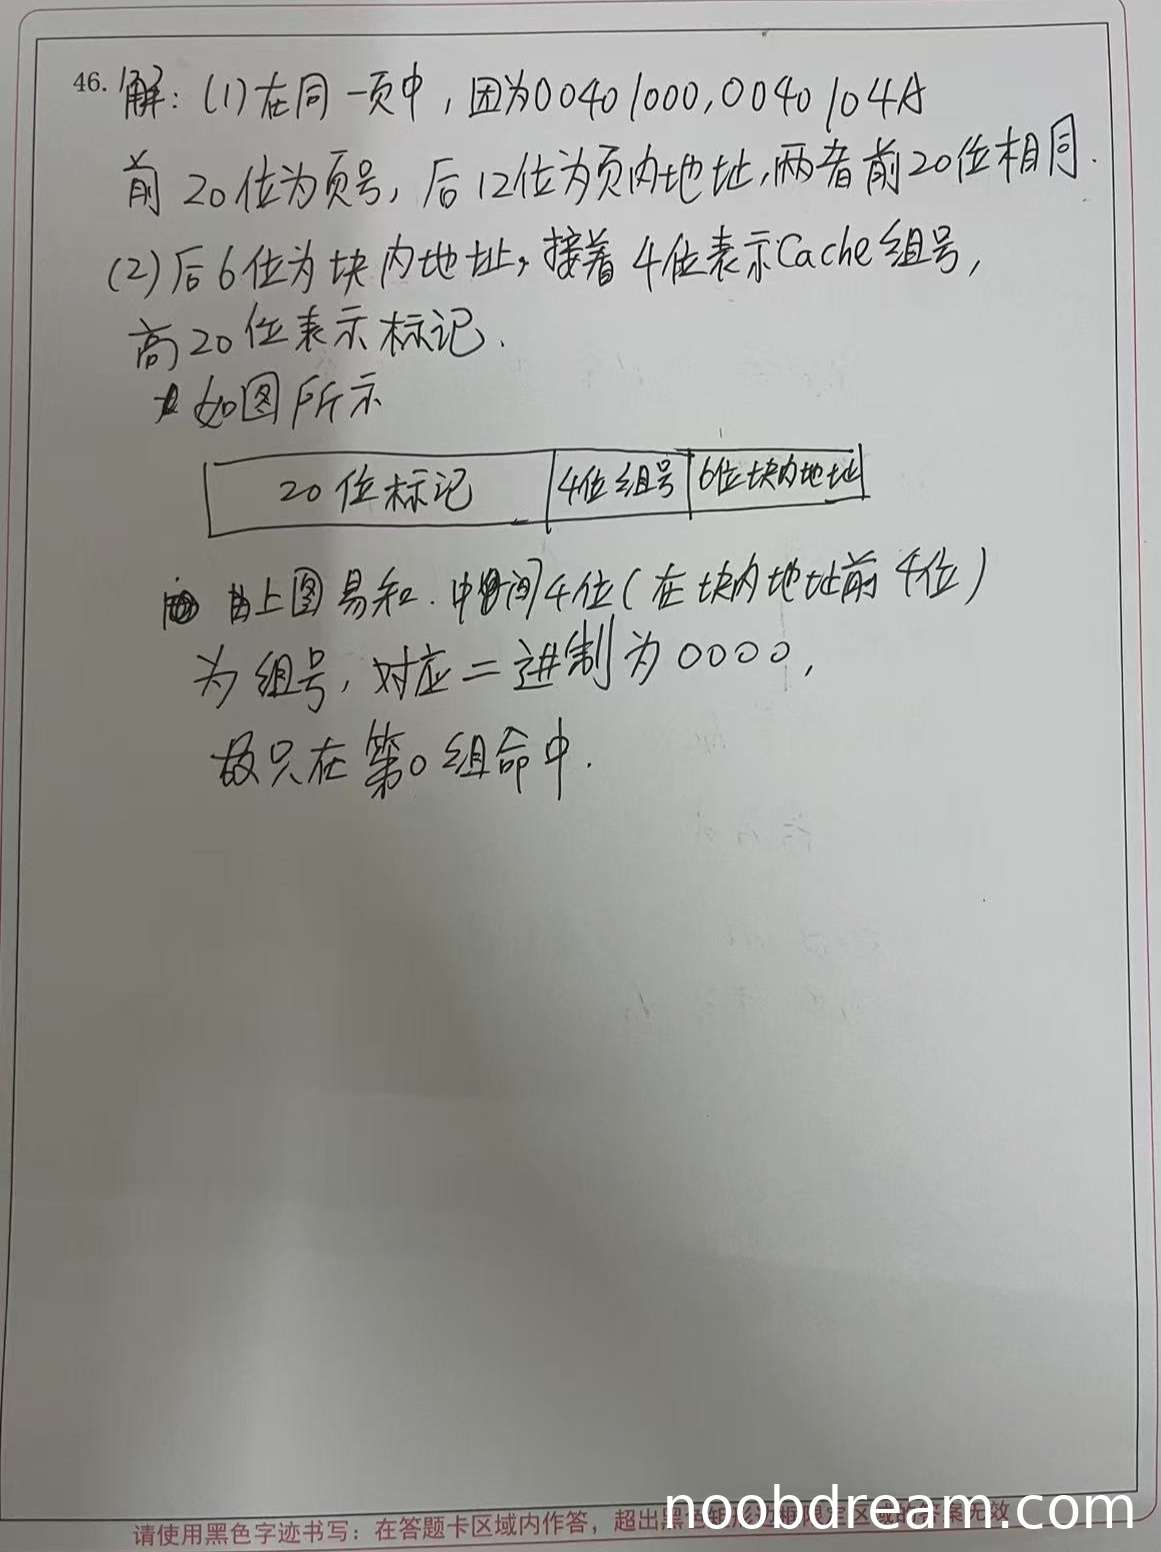 46. 解：(1)在同一页中，因为00401000，0040104A
前20位为页号，后12位为页内地址，两者前20位相同.
(2)后6位为块内地址，接着4位表示Cache组号，
高20位表示标记.
如图所示
20位标记 4位组号 6位块内地址
由上图易知.中间4位(在块内地址前4位)
为组号，对应二进制为0000，
故只在第0组命中.
noobdream.com
请使用黑色字迹书写：在答题卡区域内作答，超出黑色矩形边框限定区域的答案无效